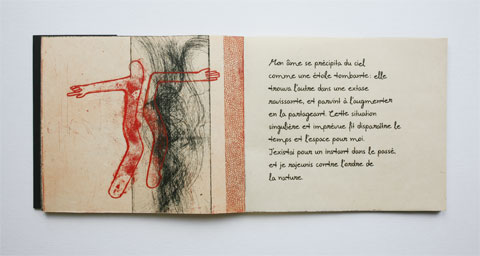 Mon âme se précipita du ciel
comme une étoile tombante: elle
trouva l'autre dans une extase
ravissante, et parvint à l'augmenter
en la partageant. Cette situation
singulière et imprévue fit disparaître le
temps et l'espace pour moi.
J'existai pour un instant dans le passé
et je rajeunis contre l'ordre de
la nature.